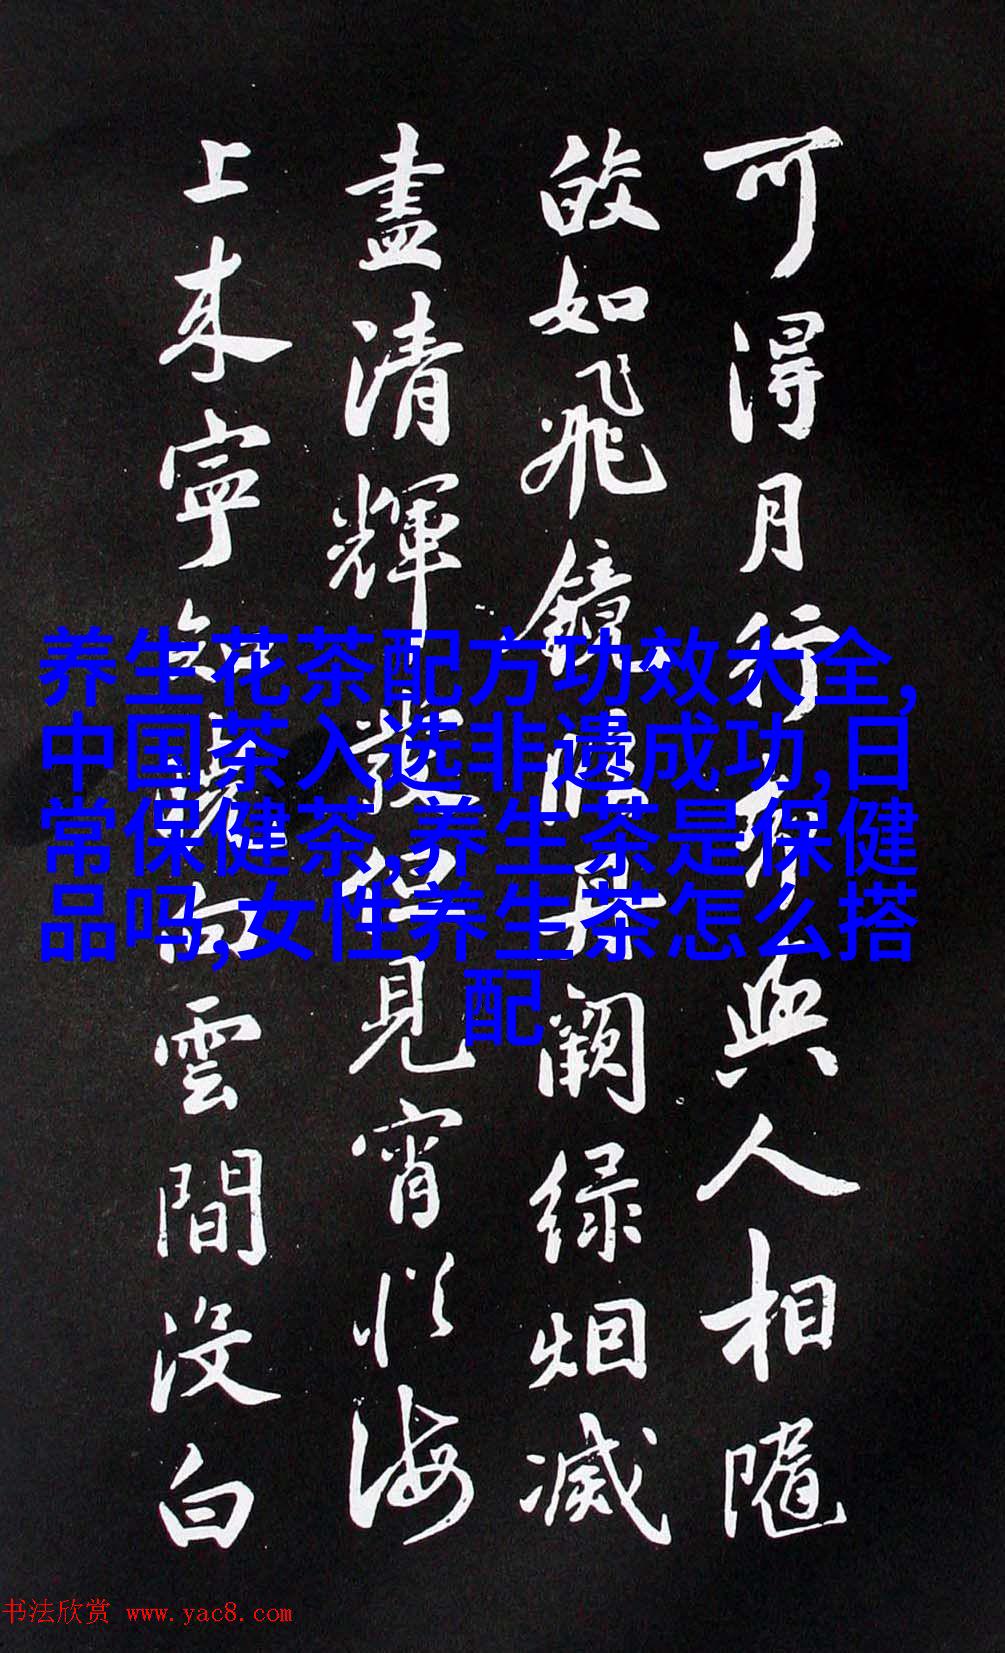 可得月行却與人相隨
皎如飛鏡臨丹闕緑烟滅
盡清輝發但見宵從海
上来寧知曉向雲間没白
养生花茶配方功效大全,
中国茶入选非遗成功,日
常保健茶,养生茶是保健
品吗,女性养生茶怎么搭
配
书法欣赏 www.yac8.com